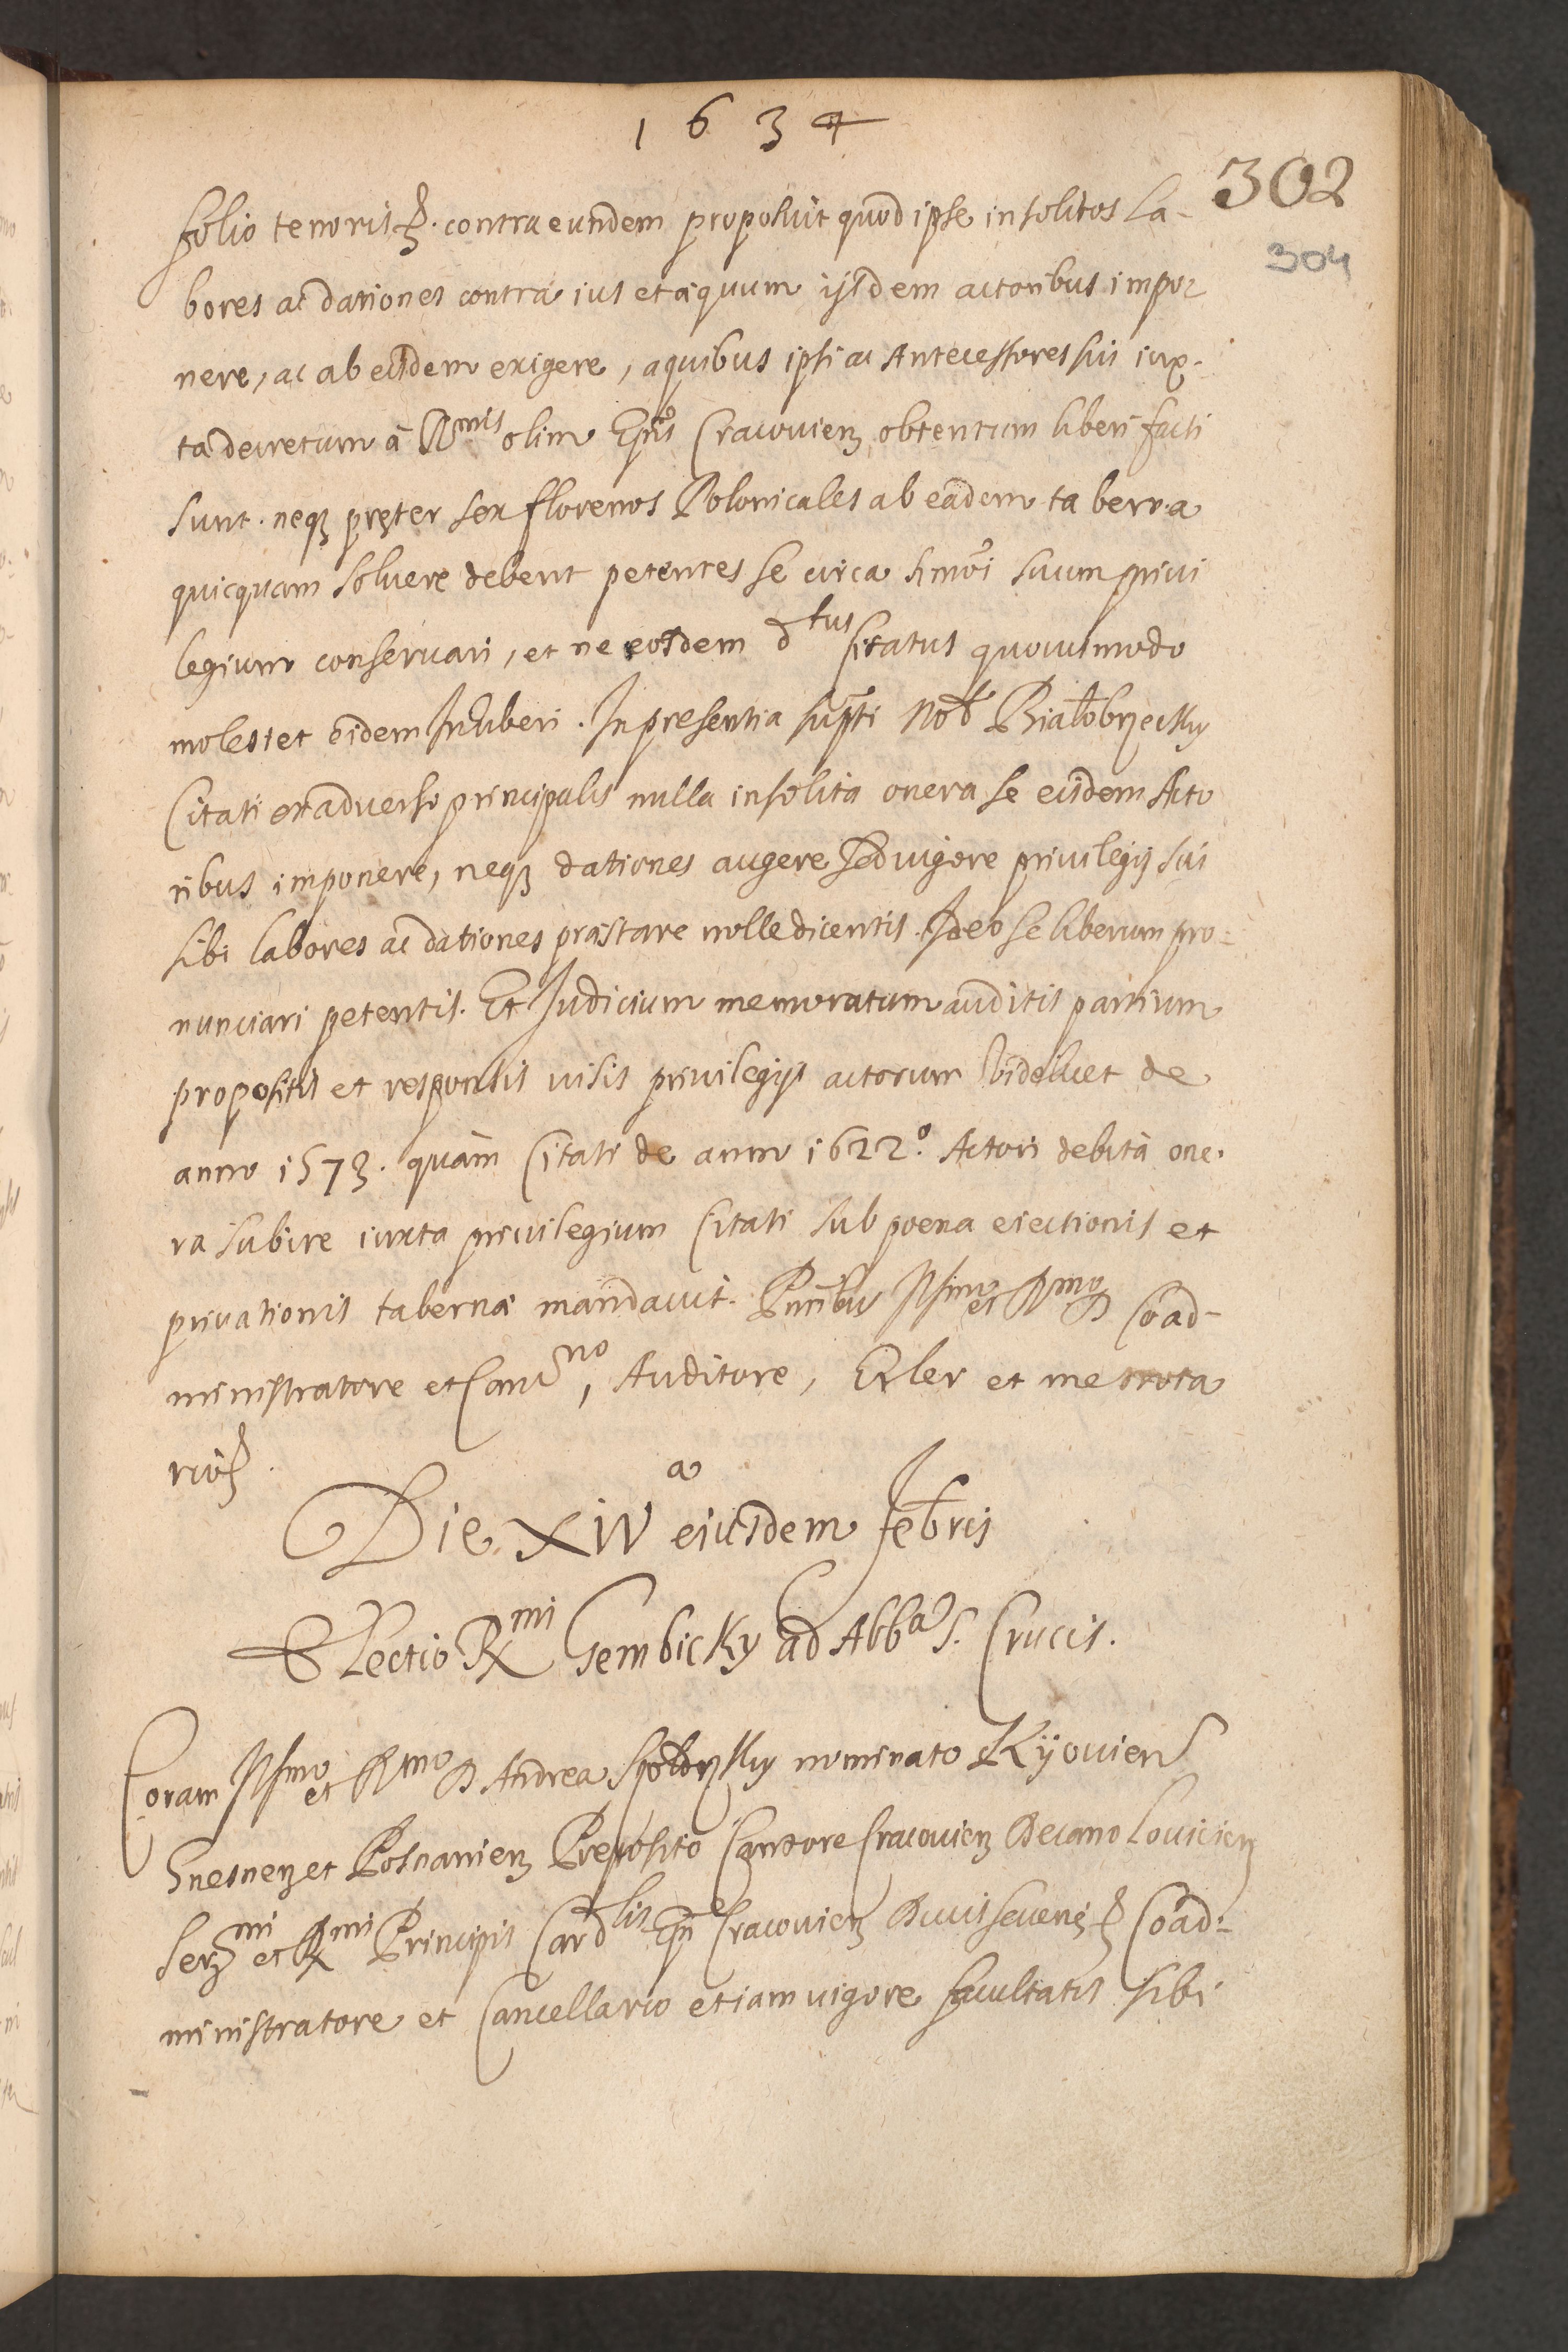 1634
302
304
folio tenoris etc. contra eundem proposuit quod ipse insolitos La-
bores ac dationes contra ius et æquum ijsdem actoribus impo-
nere, ac ab eisdem exigere, a quibus ipsi ac Antecessores sui iux-
ta decretum à Rmis olim Epis Cracovien obtentum liberi facti
sunt. neq pręter sex florenos Polonicales ab eadem taberna
quicquam soluere debent petentes se circa suum privi
legium conseruari, et ne eosdem dtus Citatus quouismodo
molestet eidem Inhiberi. In presentia supti Nob Białobrzecky
Citati ex adverso principalis nulla insolita onera se eisdem Acto
ribus imponere, neq dationes augere sed vigore privilegij sui
sibi labores ac dationes præstare nolle dicentis. Ideo se liberum pro-
nunciari petentis. Et Judicium memoratum auditis partium
propositis et responsis visis privilegijs actorum videlicet de
anno 1573. quàm Citati de anno 1622º. Actori debita one-
ra subire iuxta privilegium Citati sub poena eiectionis et
privationis tabernæ mandavit. Pntibus Illmo et Rmo D Coad-
ministratore et Auditore, Erler et me nota
rio etc.
Die XIVa eiusdem Febris
Electio Rmi Gembicky ad Abba S. Crucis.
Coram Illmo et Rmo D Andrea Szołdrzky nominato Kijovien
Gnesnen et Posnanien Preposito Cantore Cracovien Decano Lovicien
Sermi et Rmi Principis Cardlis Epi Cracovien Ducis Severię etc Coad-
ministratore et Cancellario etiam vigore facultatis sibi